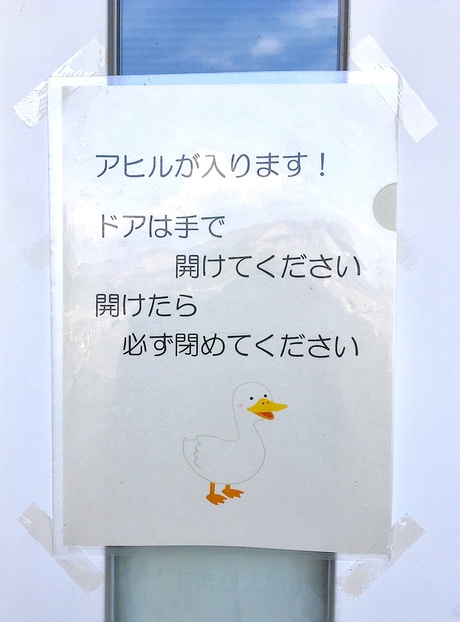 アヒルが入ります！
ドアは手で
開けてください
開けたら
必ず閉めてください